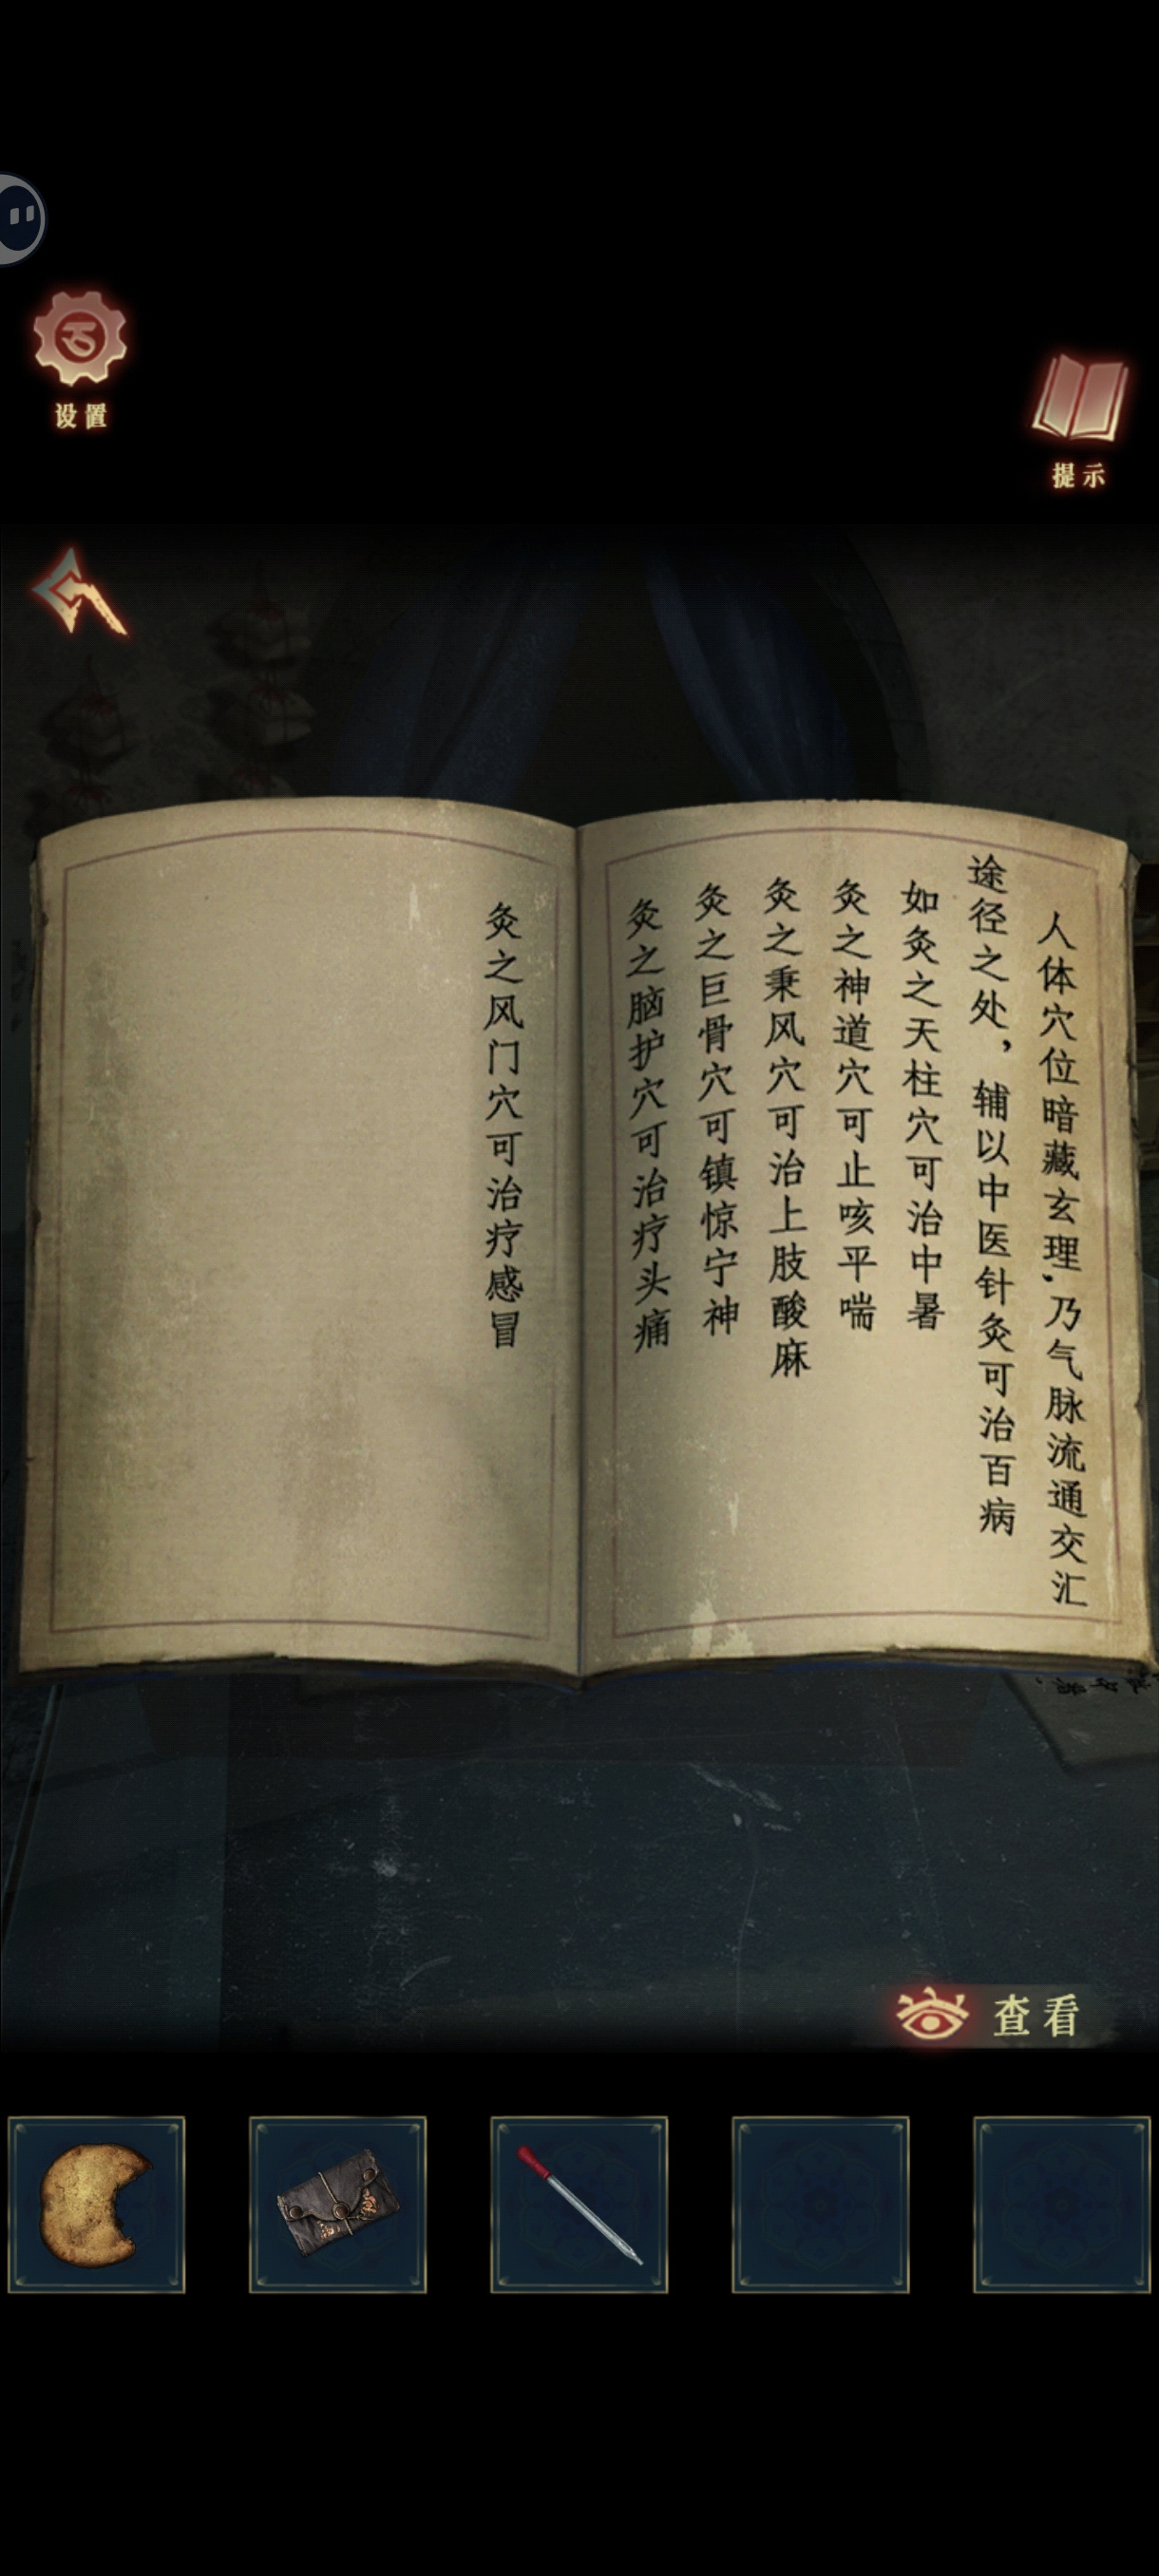 设置
提示
人体穴位暗藏玄理.乃气脉流通交汇
途径之处，辅以中医针灸可治百病
如灸之天柱穴可治中暑
灸之神道穴可止咳平喘
灸之秉风穴可治上肢酸麻
灸之巨骨穴可镇惊宁神
灸之脑护穴可治疗头痛
灸之风门穴可治疗感冒
查看